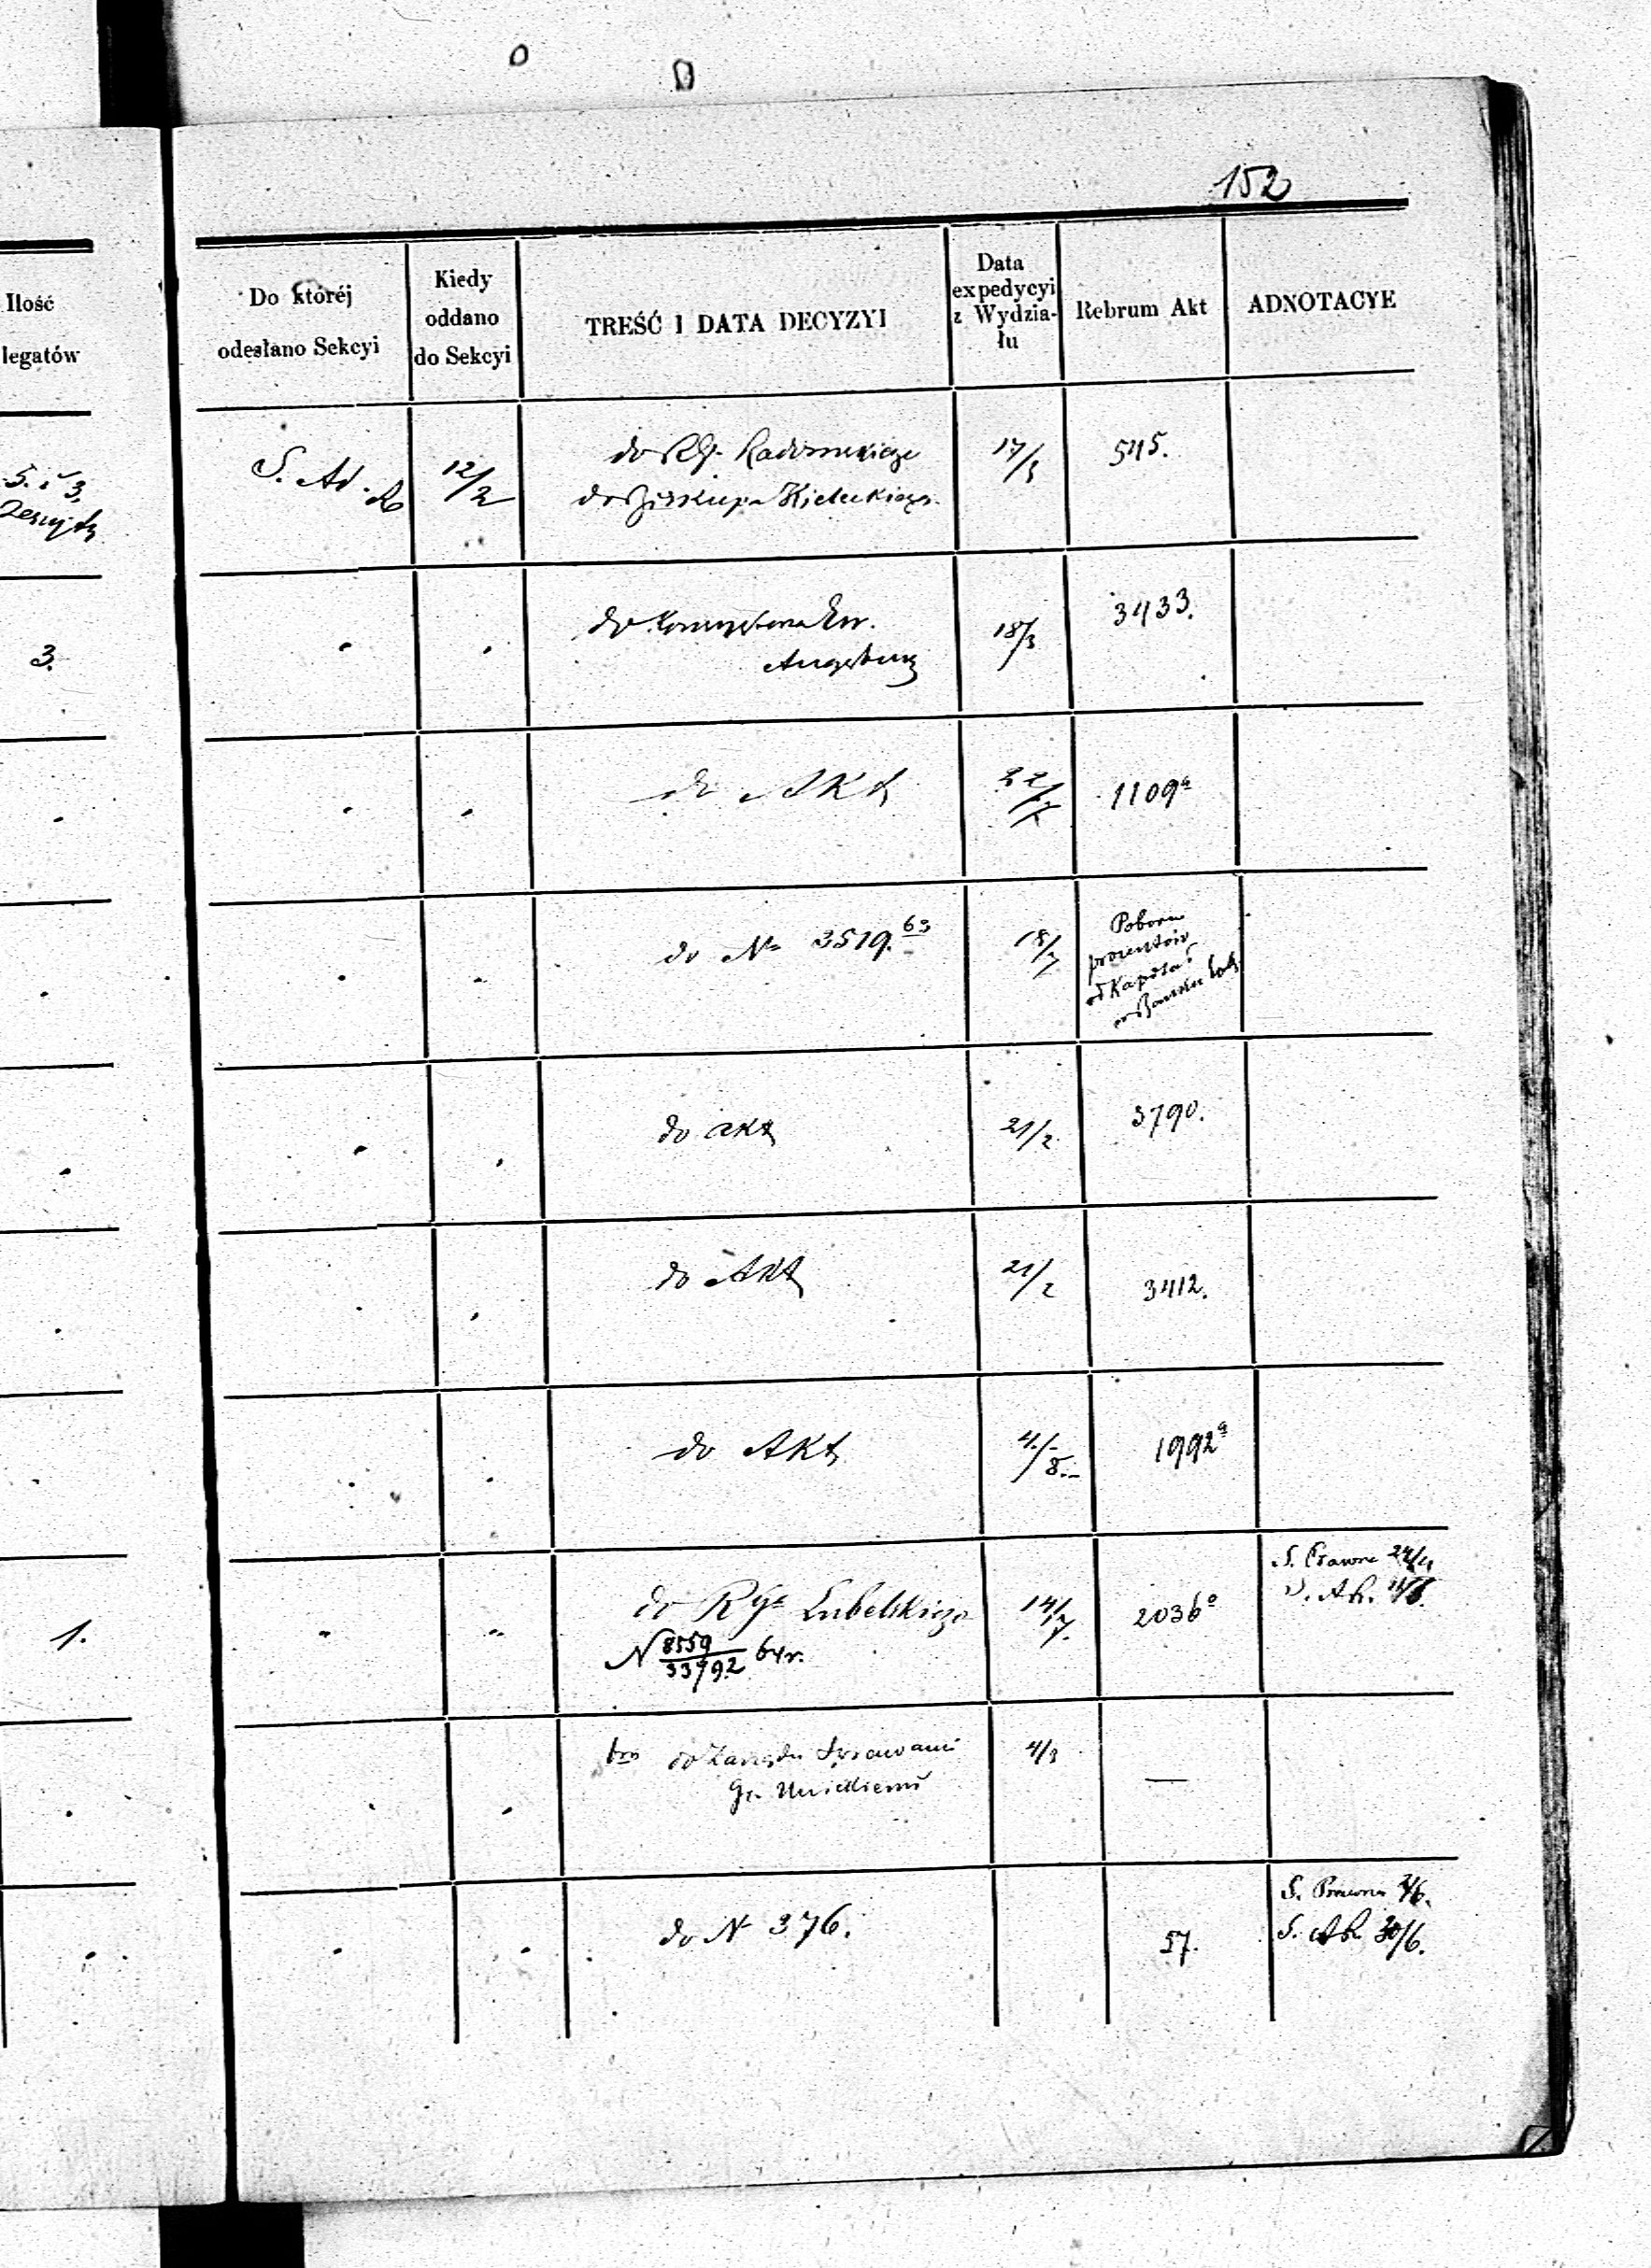 152
Ilość
legatów
Do któréj
odesłano Sekcyi
Kiedy
oddano
do Sekcyi
TREŚĆ I DATA DECYZYI
Data
expedycyi
z Wydzia-
łu
Rebrum Akt
ADNOTACYE
5. i 3.
S. Ad.
12/2
do Radomskiego
do Biskupa Kieleckiego.
17/3
545.
3.
do Konsystorza Ew.
Augsburg
18/3
3433.
do Akt
22/7
1109a
do No 3519.63
18/3
Poboru
procentów
od Kapitał
w Banku
do akt
21/2
3790.
do Akt
21/2
3412.
do Akt
4/8
1992a
1.
do Rge Lubelskiego
N 8559/33792 64r.
14/7.
2036a
S. Prawna 24/4
S. Ad.
do Zarządu Sprawami
Gr. Unickiemi
4/3
—
do N 376.
57.
S. Prawna 2/6.
S. Ad. 30/6.